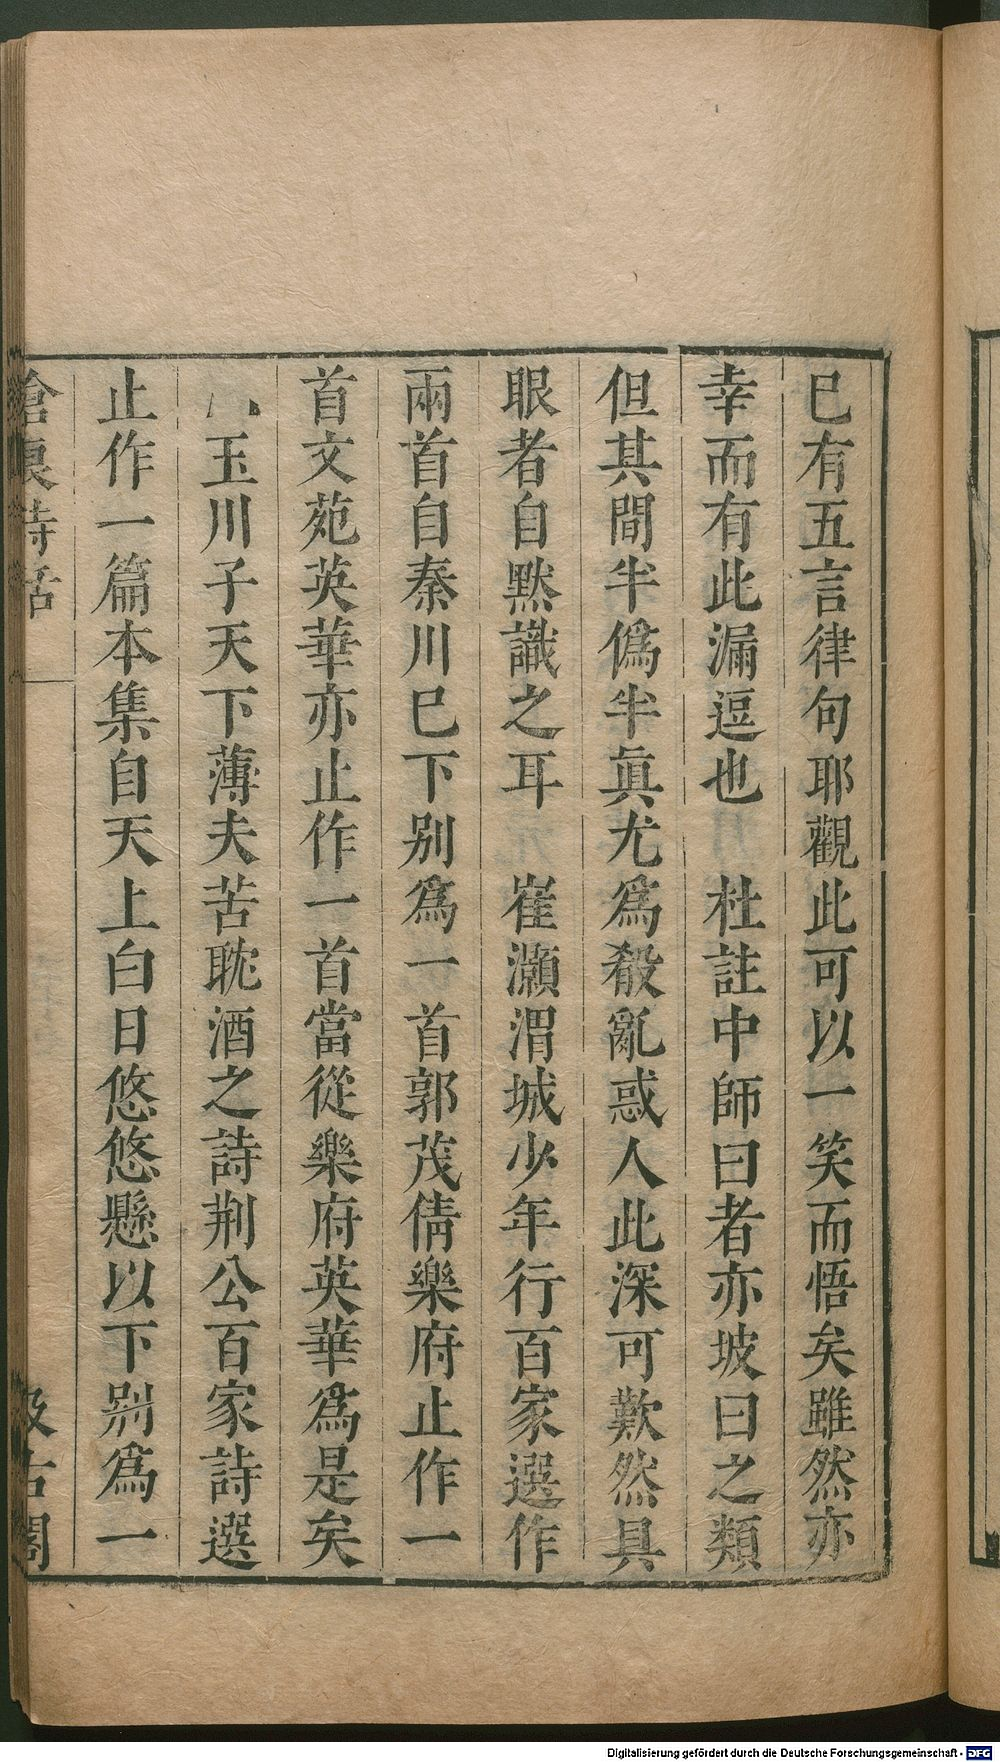 巳有五言律句耶觀此可以一笑而悟矣雖然亦
幸而有此漏逗也　杜註中師曰者亦坡曰之類
但其間半僞半眞尤爲殽亂惑人此深可歎然具
眼者自默識之耳　崔灝渭城少年行百家選作
兩首自秦川巳下别爲一首郭茂倩樂府止作一
首文苑英華亦止作一首當從樂府英華爲是矣
玉川子天下薄夫苦耽酒之詩荆公百家詩選
止作一篇本集自天上白日悠悠懸以下别爲一
滄浪詩話
汲古閣
Digitalisierung gefördert durch die Deutsche Forschungsgemeinschaft - DFG